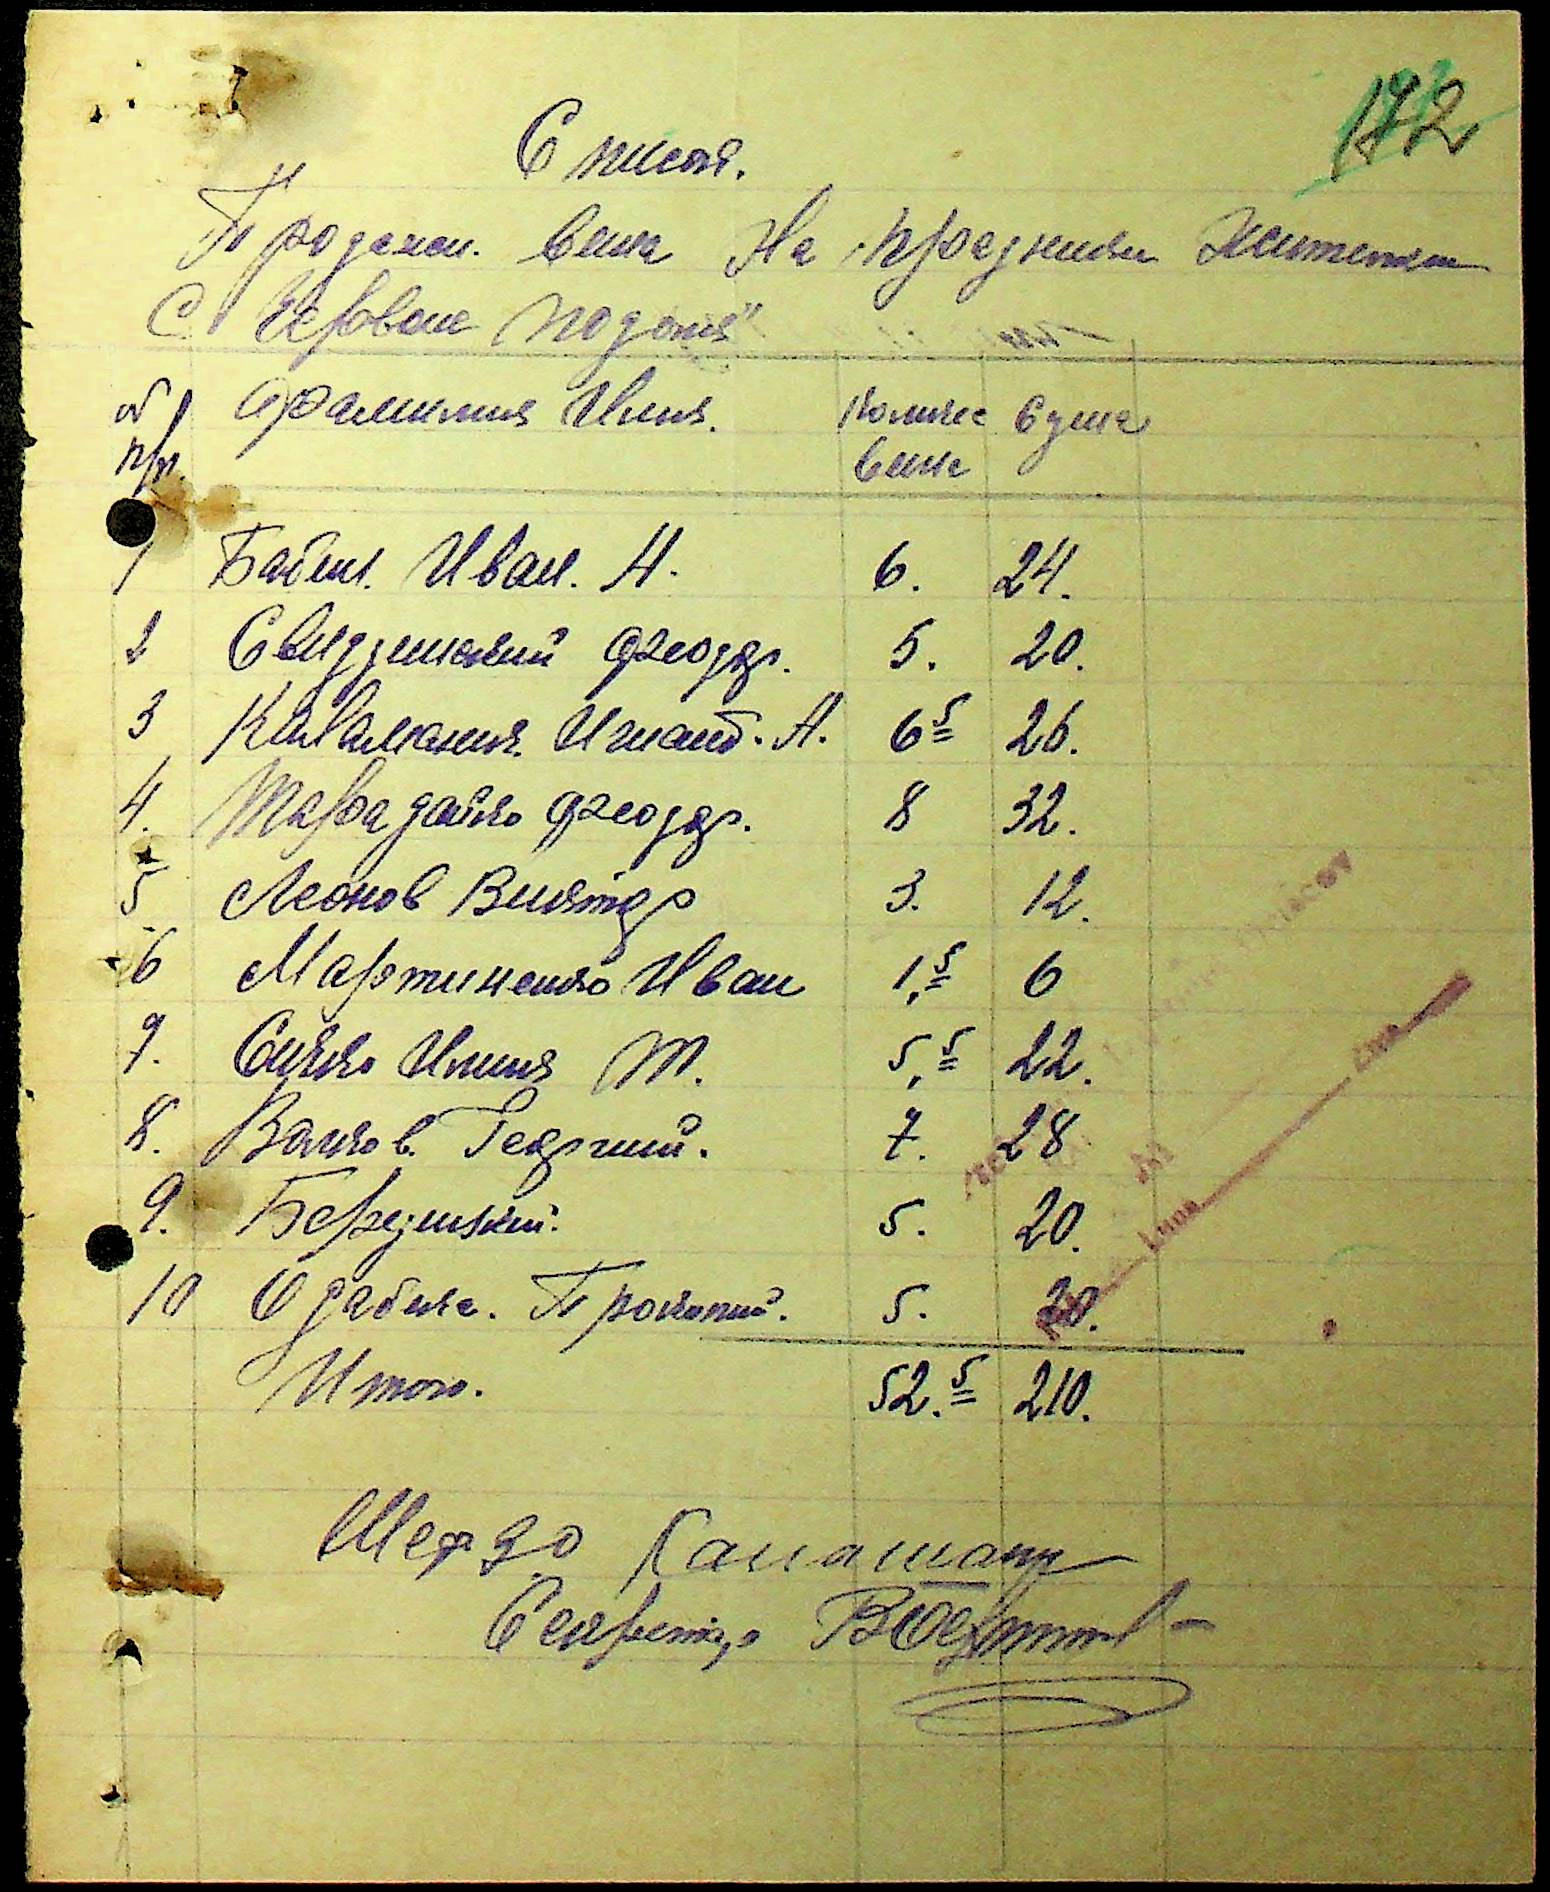 172
Список.
Продажи вина На праздники Жителям
С Червоне Подоля"
№ пр. Фамилия Имя. Количе Сума
вина
1 Бабич. Иван. Н. 6. 24.
2 Свидзинский Феодор. 5. 20.
3 Игнат. А. 6 5 26.
4. Феодор. 8 32.
5 Леонов Виктор 3. 12.
6 Мартиненко Иван 1,5 6
7. Сичко Илия М. 5,5 22.
8. Волков. Георгий. 7. 28
9. Березинский. 5. 20.
10 Одабиха. Прокопий. 5. 20.
Итого. 52.5 210.
Шеф
Секретар